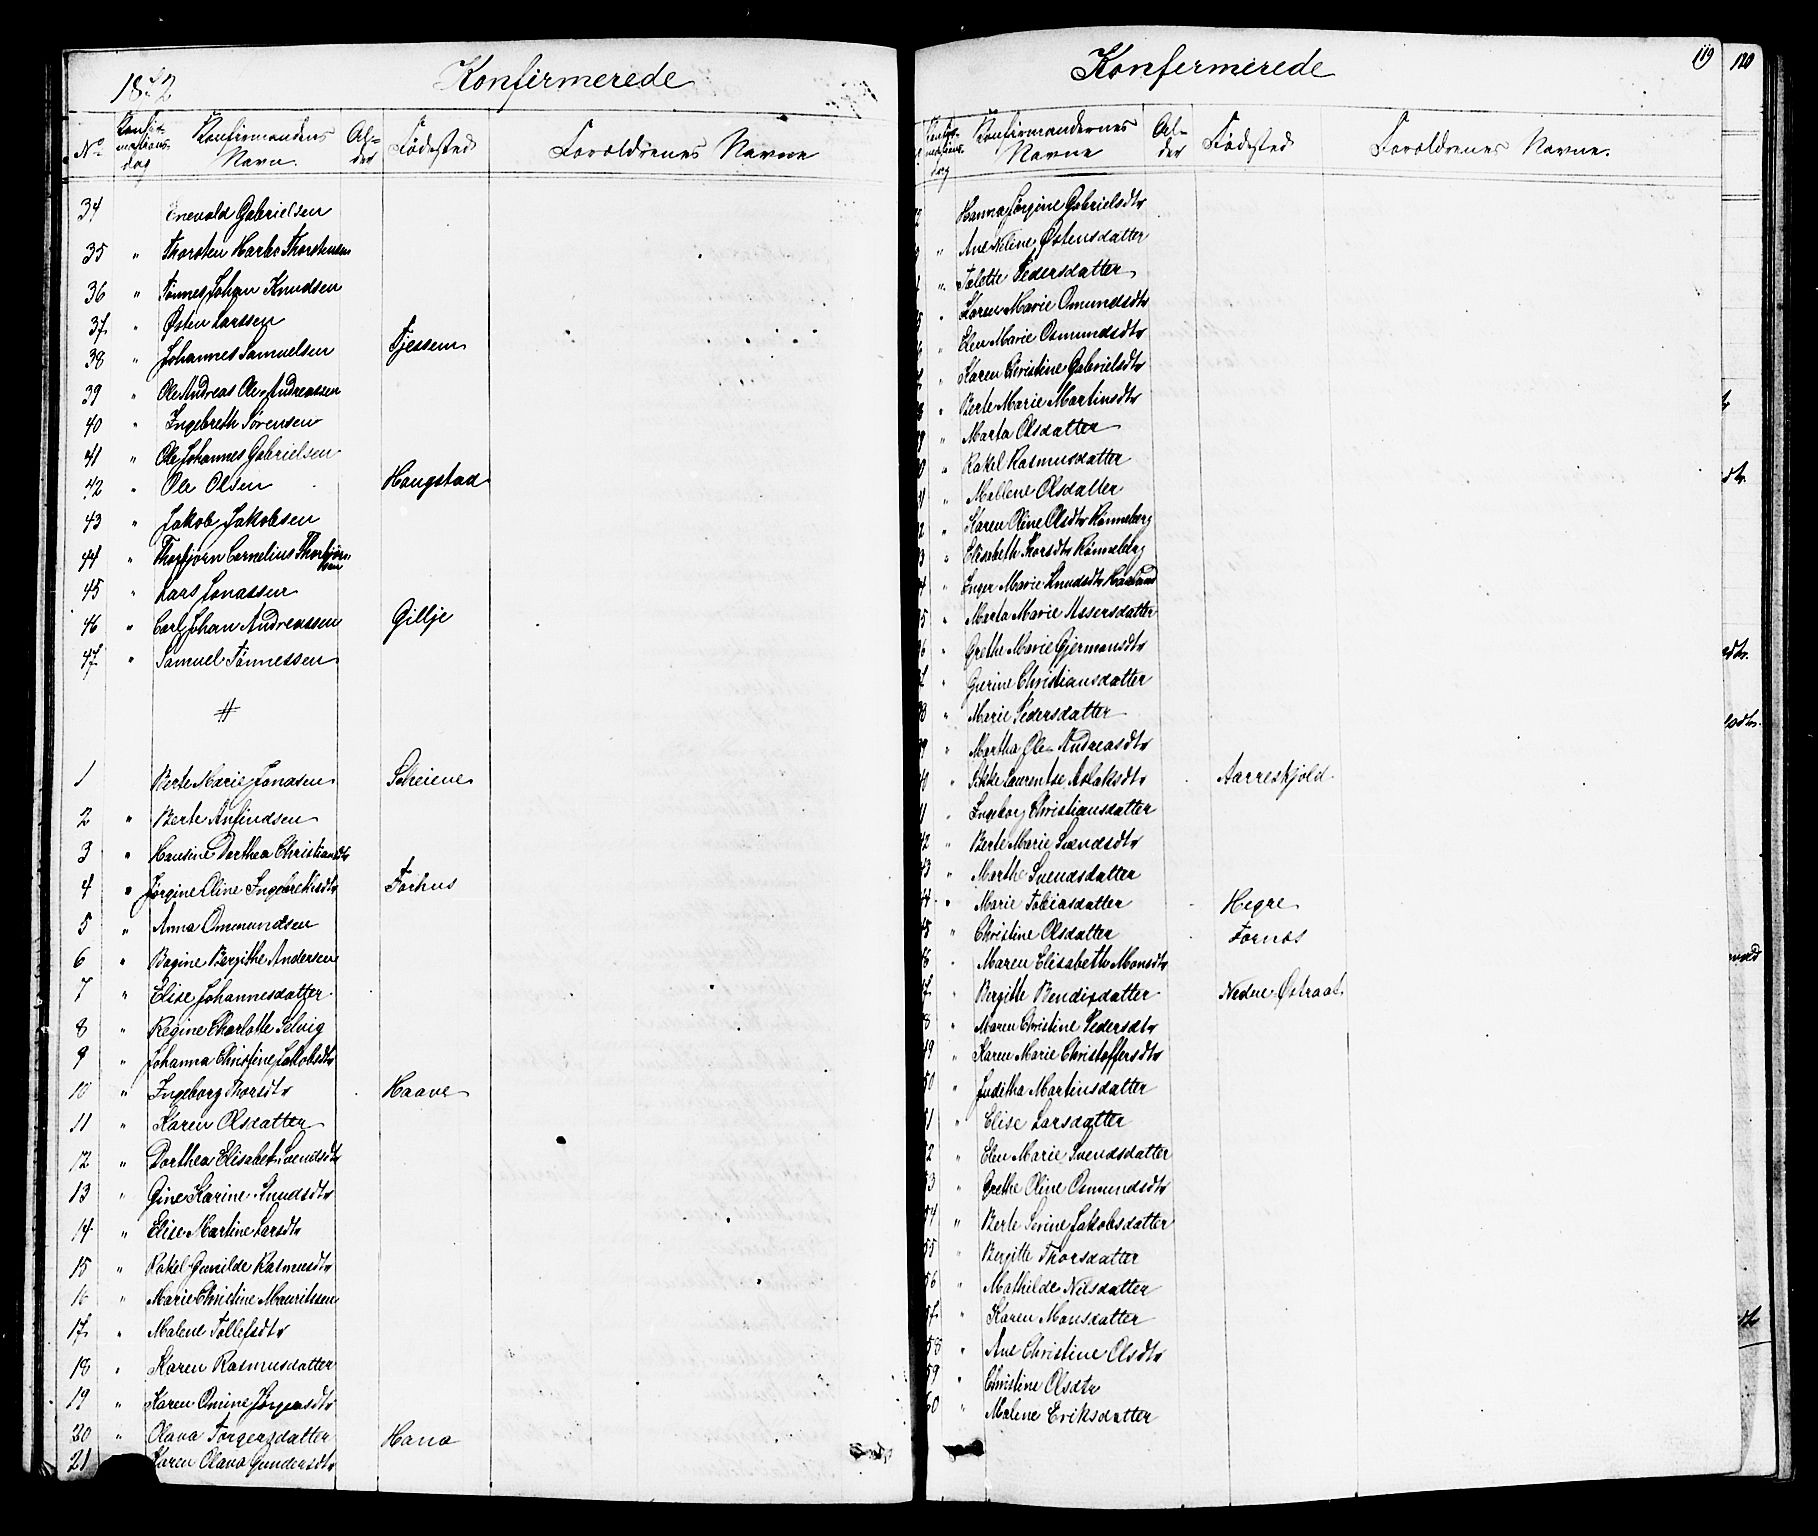 1872 Konfirmerede
No. Konfirmations dag Konfirmandens Navn. Alder Fødested Forældrenes Navne
34 Enevald Gabrielsen
35 " Thorsten Thorstensen
36 " Tønnes Johan Knudsen
37 " Østen Larssen
38 " Johannes Samuelsen Tjessem
39 " Ole Andreas Ole Andreassen
40 " Ingebreth Sørensen
41 " Ole Johannes Gabrielsen
42 " Ole Olsen Haugstad
43 " Jakob Jakobsen
44 " Thorbjørn Cornelius Thorbjørnsen
45 " Lars Jonassen
46 " Carl Johan Andreassen Gillje
47 " Samuel Tønnessen
#
1 Berte Marie Jonasen Scheiene
2 " Berte Anfindsen
3 " Hansine Dorthea Christiansdtr
4 " Jørgine Oline Ingebretsdtr Forhus
5 " Anna Ommundsen
6 " Bagine Bergithe Andersen
7 " Elise Johannesdatter
8 " Regine Charlotte Selvig
9 " Johanna Christine Jakobsdtr
10 " Ingeborg Thorsdtr Haave
11 " Karen Olsdatter
12 " Dorthea Elisabet Svendsdtr
13 " Gine Karine Knudsdtr
14 " Elise Martine Larsdtr
15 " Rakel Gunilde Rasmusdtr
16 " Marie Christine Mauritssen
17 " Malene Tollefsdtr
18 " Karen Rasmusdatter
19 " Karen Omine Jørgensdtr
20 " Olava Torgersdatter Hana
21 Karen Olava Gundersdtr
Konfermerede 119 120
Konfirmations dag Konfirmandernes Navne Alder Fødested Forældrenes Navne.
Hanna Jørgine Gabrielsdtr
" Ane Neline Østensdatter
" Talette Pedersdatter
" Karen Marie Osmundsdtr
" Elen Marie Osmundsdtr
" Karen Christine Gabrielsdtr
" Berte Marie Martinsdtr
" Marta Olsdatter
" Rakel Rasmusdatter
" Mallene Olsdatter
" Karen Oline Olsdtr Rønneberg
" Elisabeth Thorsdtr Rønneberg
" Inger Marie Knudsdtr
" Marta Marie Assersdatter
" Grethe Marie Gjermansdtr
" Gurine Christiansdatter
" Marie Pedersdatter
" Martha Ole Andreasdtr
" Sikke Laurentse Aslaksdtr Aarreskjold
" Ingeborg Christiansdatter
42 " Berte Marie Svendsdtr
43 " Marthe Svendsdatter
44 " Marie Tobiasdatter Hegre
45 " Christine Olsdatter Fornæs
" Maren Elisabeth Monsdtr
" Bergitte Bendixdatter Nedre Østraat
" Maren Christine Pedersdtr
49 " Karen Marie Christoffersdtr
50 " Juditha Martinsdatter
51 " Elise Larsdatter
52 " Elen Marie Svendsdatter
53 " Grethe Oline Osmundsdtr
54 " Berte Serine Jakobsdatter
55 " Bergitte Thorsdatter
56 " Mathilde Nilsdatter
57 " Karen Monsdatter
58 " Ane Christine Olsdtr
59 " Christine Olsdtr
60 " Malene Eriksdatter